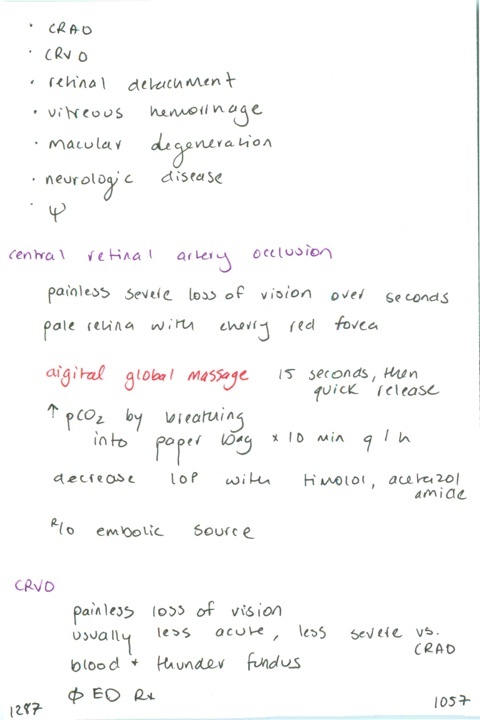 · CRAO
· CRVO
· retinal detachment
· vitreous hemorrhage
· macular degeneration
· neurologic disease
· ψ
central retinal artery occlusion
painless severe loss of vision over seconds
pale retina with cherry red fovea
digital global massage 15 seconds, then
quick release
↑ pCO2 by breathing
into paper bag × 10 min q 1 h
decrease IOP with timolol, acetazol
amide
R/o embolic source
CRVO
painless loss of vision
usually less acute, less severe vs.
CRAO
blood + thunder fundus
ϕ ED Rx
1287
1057